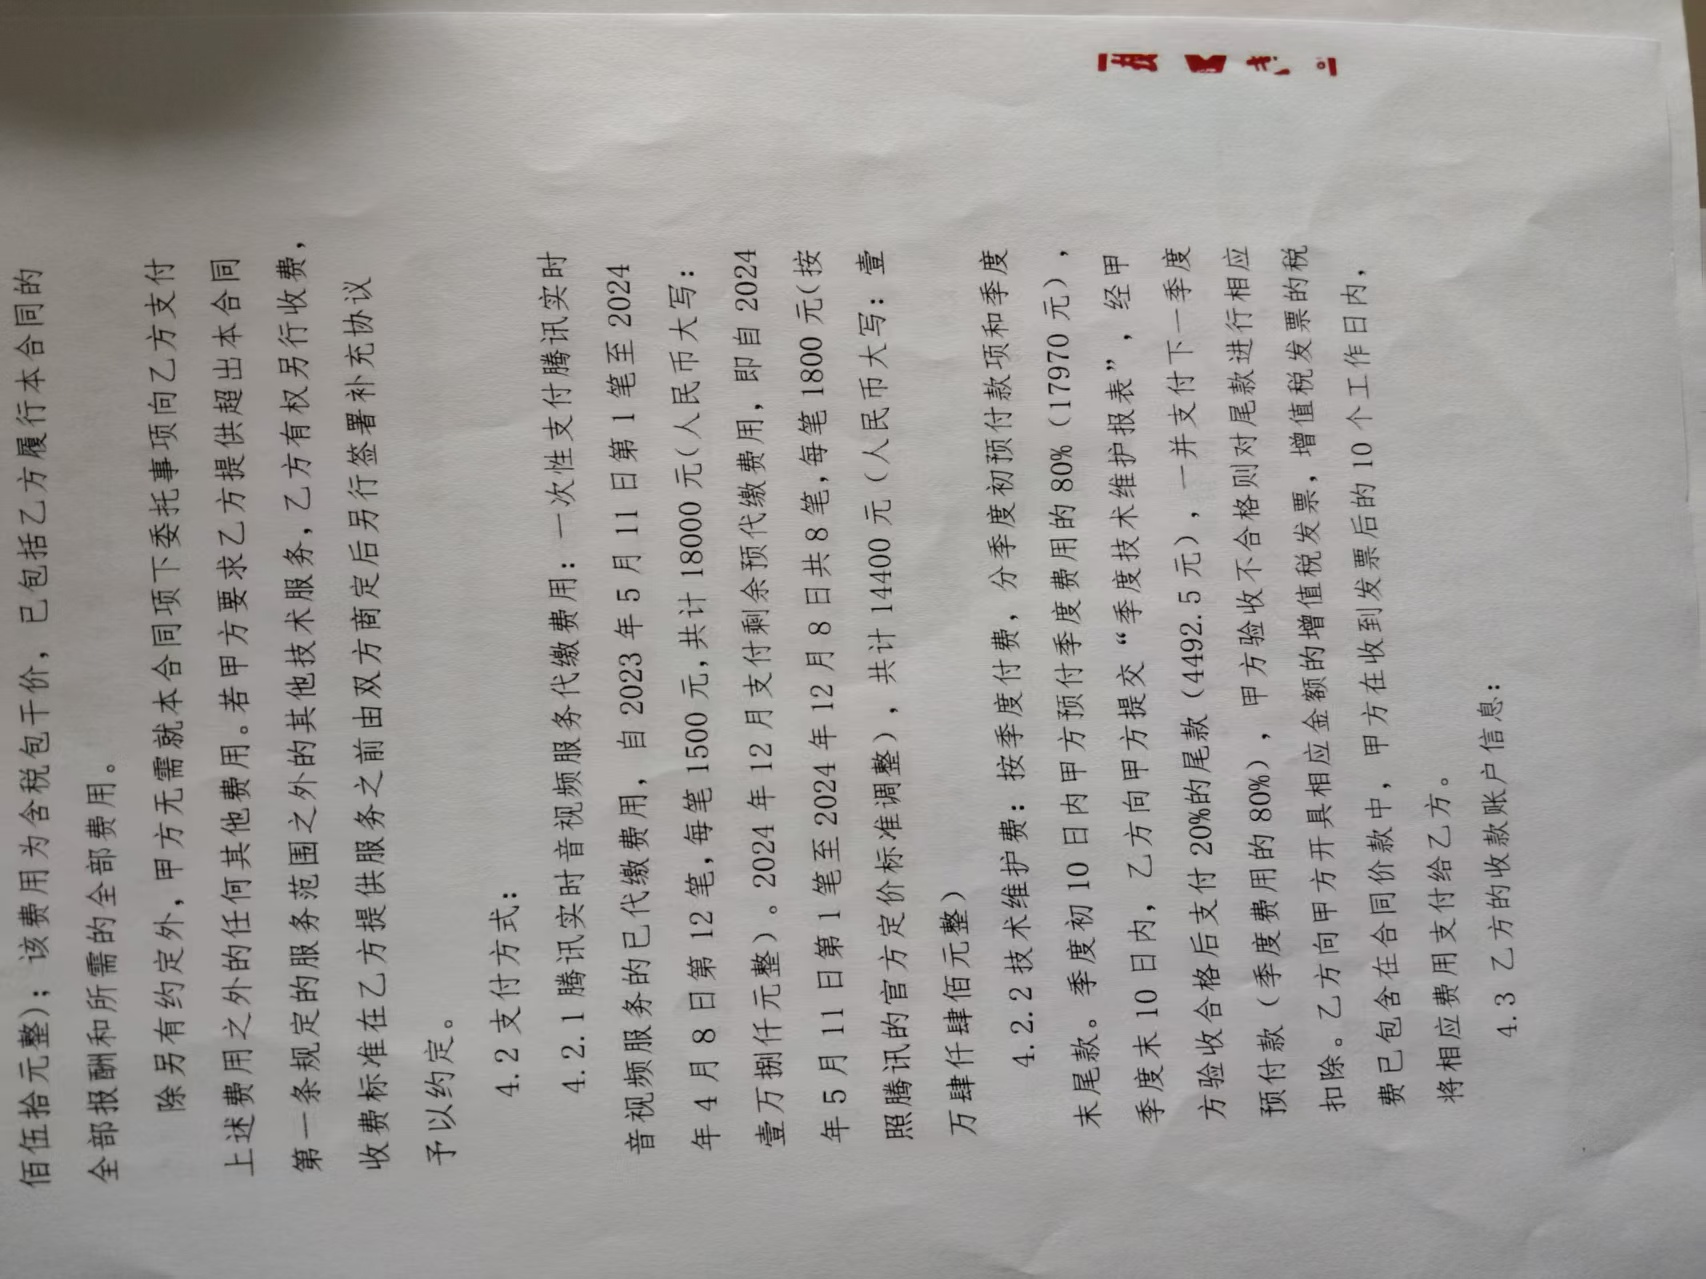 佰伍拾元整）；该费用为含税包干价，已包括乙方履行本合同的
全部报酬和所需的全部费用。
除另有约定外，甲方无需就本合同项下委托事项向乙方支付
上述费用之外的任何其他费用。若甲方要求乙方提供超出本合同
第一条规定的服务范围之外的其他技术服务，乙方有权另行收费，
收费标准在乙方提供服务之前由双方商定后另行签署补充协议
予以约定。
4.2 支付方式：
4.2.1 腾讯实时音视频服务代缴费用：一次性支付腾讯实时
音视频服务的已代缴费用，自 2023 年 5 月 11 日第 1 笔至 2024
年 4 月 8 日第 12 笔，每笔 1500 元，共计 18000 元（人民币大写：
壹万捌仟元整）。2024 年 12 月支付剩余预代缴费用，即自 2024
年 5 月 11 日第 1 笔至 2024 年 12 月 8 日共 8 笔，每笔 1800 元（按
照腾讯的官方定价标准调整），共计 14400 元（人民币大写：壹
万肆仟肆佰元整）
4.2.2 技术维护费：按季度付费，分季度初预付款项和季度
末尾款。季度初 10 日内甲方预付季度费用的 80%（17970 元），
季度末 10 日内，乙方向甲方提交“季度技术维护报表”，经甲
方验收合格后支付 20%的尾款（4492.5 元），一并支付下一季度
预付款（季度费用的 80%），甲方验收不合格则对尾款进行相应
扣除。乙方向甲方开具相应金额的增值税发票，增值税发票的税
费已包含在合同价款中，甲方在收到发票后的 10 个工作日内，
将相应费用支付给乙方。
4.3 乙方的收款账户信息：